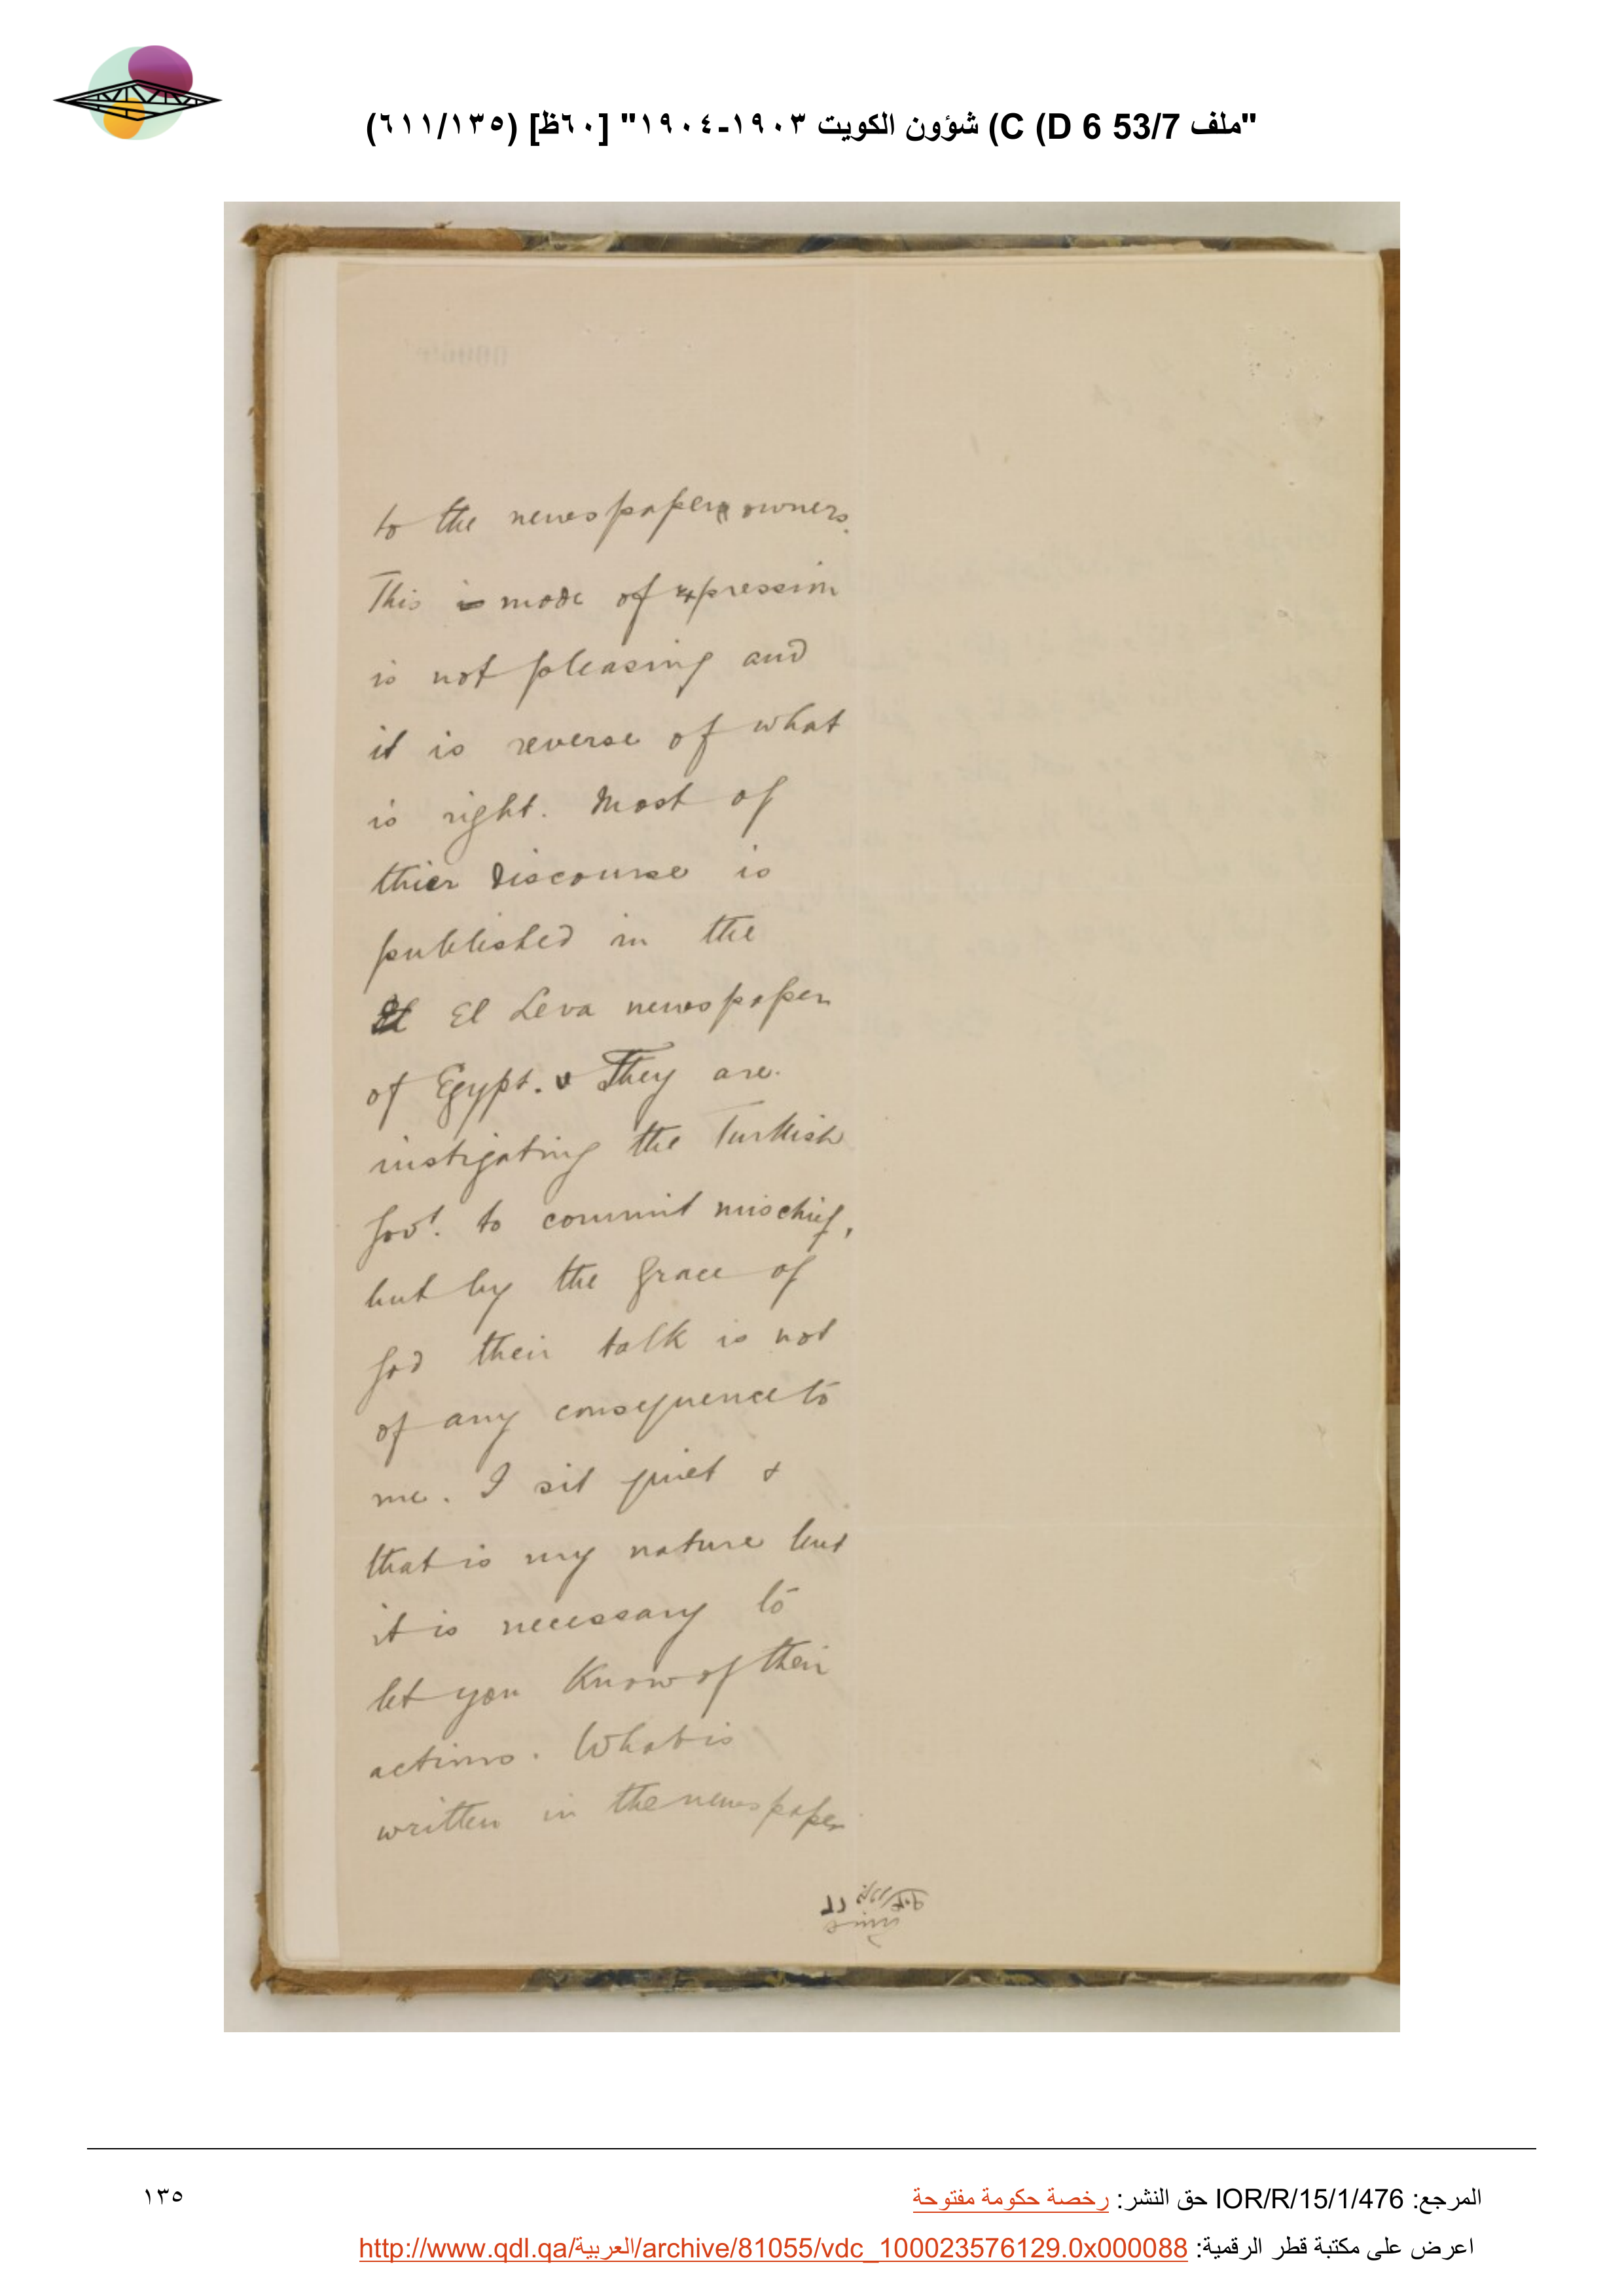 "ملف 53/7 D 6) C) شؤون الكويت ١٩٠٣-١٩٠٤" [٦٠ظ] (٦١١/١٣٥)
to the newspaper owners.
This is mode of expression
is not pleasing and
it is reverse of what
is right. Most of
thier discourse is
published in the
El El Leva newspaper
of Egypt. They are
instigating the Turkish
Govt. to commit mischief,
but by the grace of
God their talk is not
of any consequence to
me. I sit quiet &
that is my nature but
it is necessary to
let you know of their
actions. What is
written in the newspaper
المرجع: IOR/R/15/1/476 حق النشر: رخصة حكومة مفتوحة
١٣٥
اعرض على مكتبة قطر الرقمية: http://www.qdl.qa/العربية/archive/81055/vdc_100023576129.0x000088